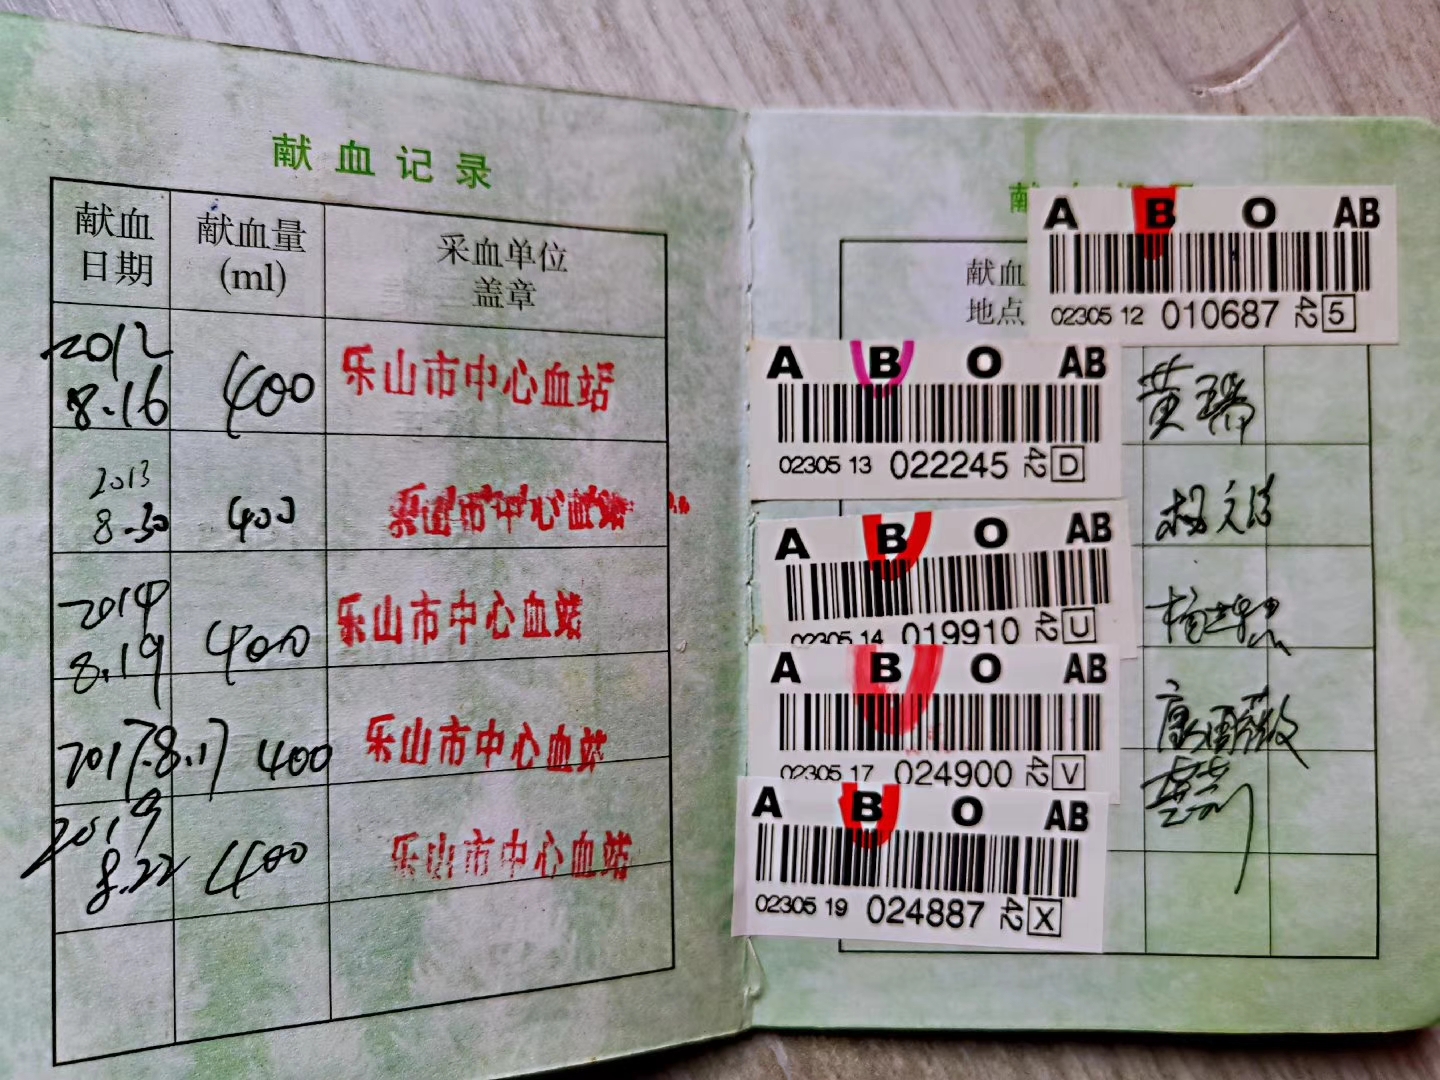 献血记录
献血日期 献血量(ml) 采血单位盖章
2012 8.16 400 乐山市中心血站
2013 8.30 400 乐山市中心血站
2014 8.19 400 乐山市中心血站
2017.8.17 400 乐山市中心血站
2019 8.22 400 乐山市中心血站
献
献血地点
A B O AB
02305 12 010687 42 5
A B O AB
02305 13 022245 42 D
A B O AB
02305 14 019910 42 U
A B O AB
02305 17 024900 42 V
A B O AB
02305 19 024887 42 X